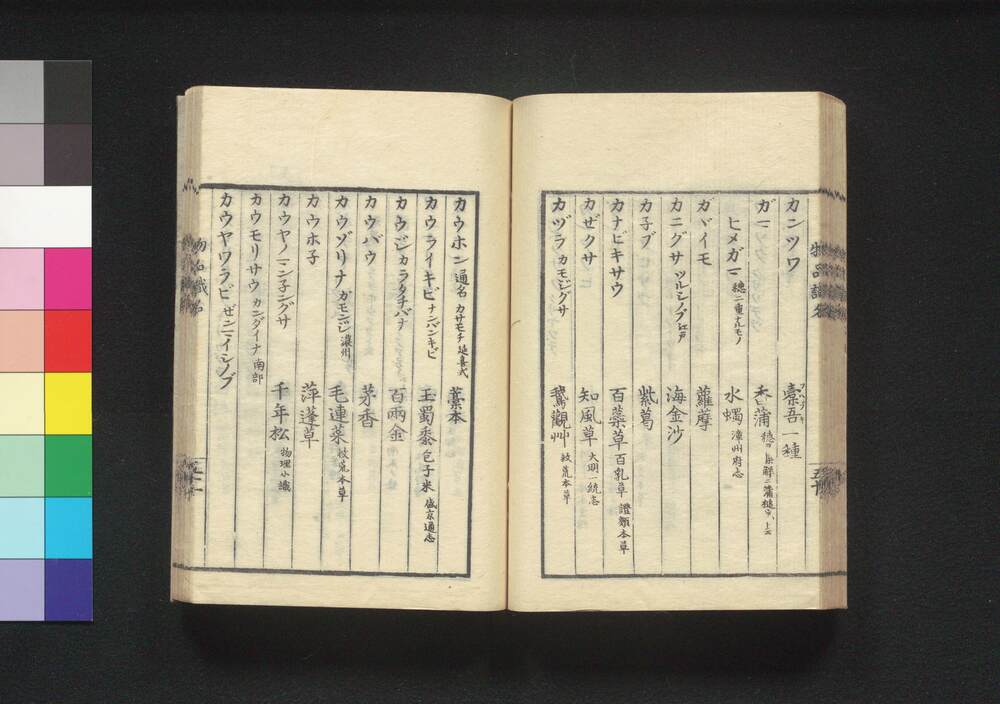 カンツワ 橐吾一種
ガマ 香蒲
ヒメガマ 穂二重ナルモノ 水蠋 漳州府志
ガヾイモ 蘿藦
カニグサ ツルシノブ江戸 海金沙
カ子ブ 紫葛
カナビキサウ 百蘂草 百乳草 證類本草
カゼクサ 知風草 大明一統志
カヅラ カモジグサ 鵞觀艸 救荒本草
物品識名 五十
カウホン 通名 カサモチ 延喜式 藁本
カウライキビ ナンバンキビ 玉蜀黍 包子米 盛京通志
カウジ カラタチバナ 百兩金
カウバウ 茅香
カウゾリナ ガモンジ 濃州 毛連菜 救荒本草
カウホ子 萍蓬草
カウヤノマン子ングサ 千年松 物理小識
カウモリサウ カンダイナ 南部
カウヤワラビ ぜンマイシノブ